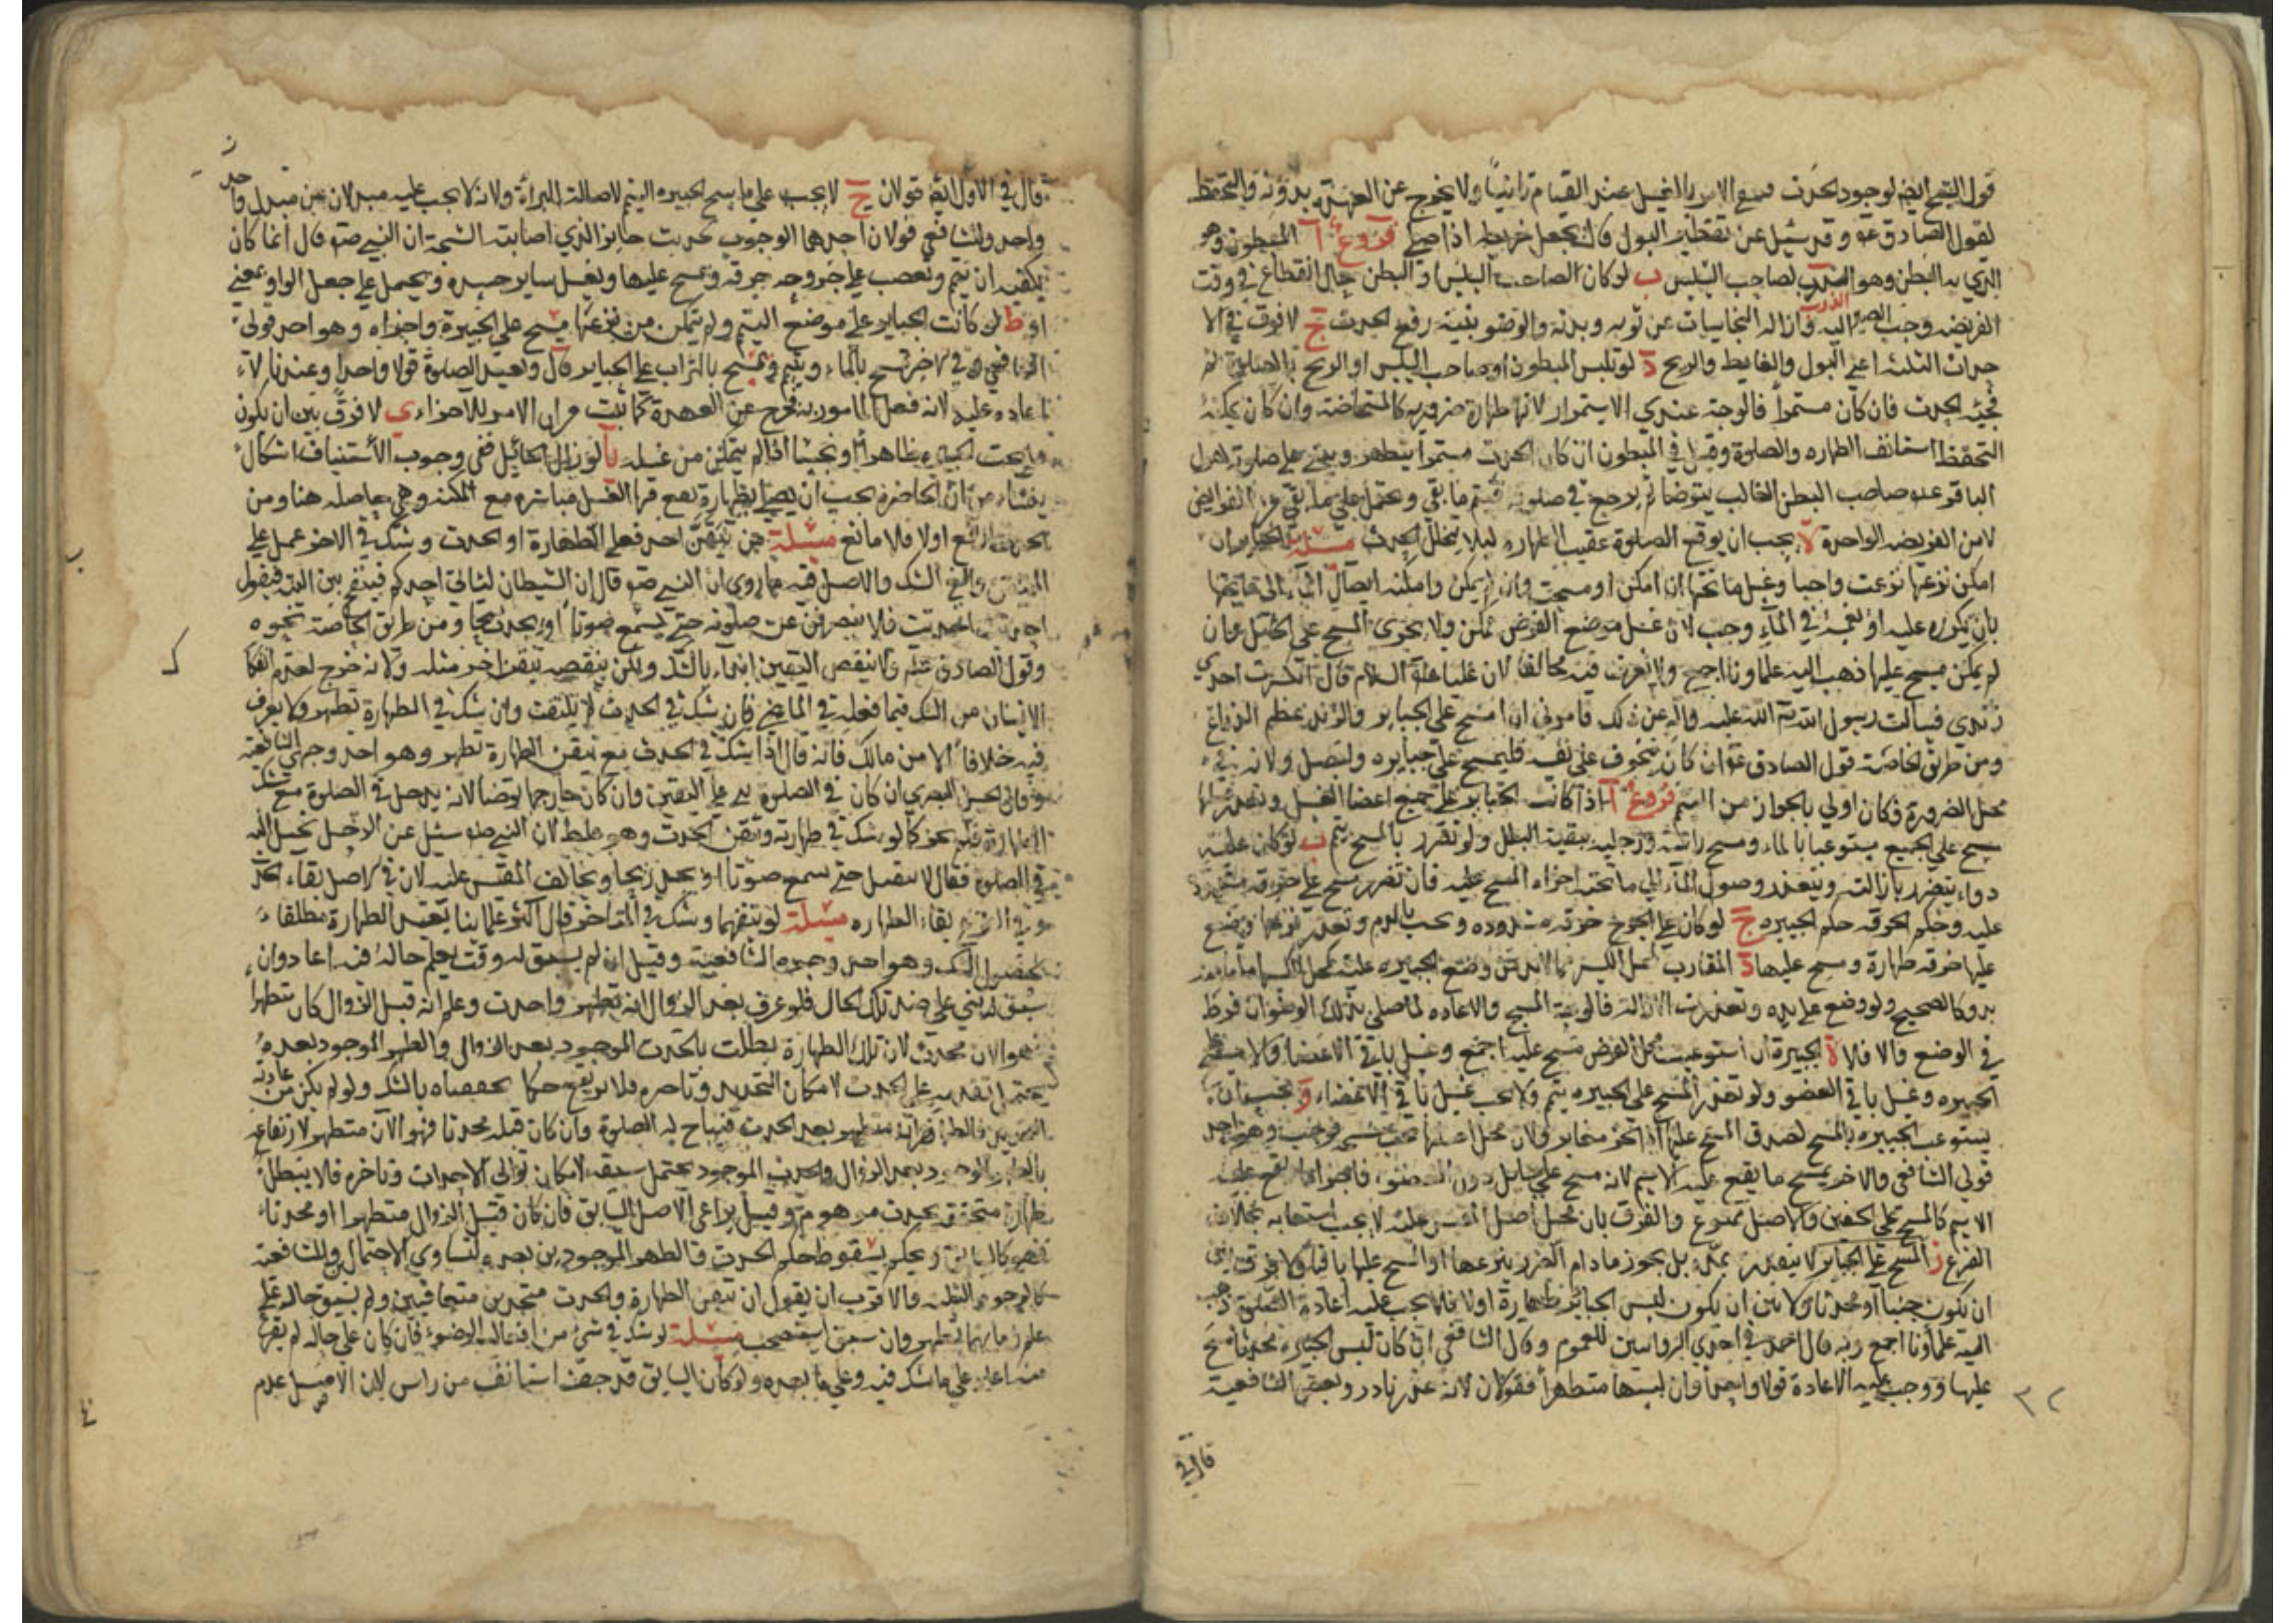 قول الشيخ ايضا لوجود الحدث فمع الامر بالغسل عند القيام ثانيا ولا يخرج عن العهدة بدونه والتحفظ
لقول الصادق ع وقد سئل عن تقطير البول قال يجعل خريطه اذا صلى فروع آ المبطون وهو
الذي به البطن وهو الذرب لصاحب السلس ب لو كان لصاحب السلس او البطن حال انقطاع في وقت
الفريضه وجب الصبر اليه وازاله النجاسات عن ثوبه وبدنه والوضو بنية رفع الحدث ج لا فرق في الا
حداث الثلثة اعني البول والغايط والريح د لو تلبس المبطون او صاحب السلس او الريح بالصلوة ثم
فجئه الحدث فان كان مستمرا فالوجه عندي الاستمرار لانها طهارة ضروريه كالمستحاضة وان كان يمكنه
التحفظ استانف الطهاره والصلوة وقيل في المبطون ان كان الحدث مستمرا يتطهر ويبني على صلوته لقول
الباقر ع صاحب البطن الغالب يتوضا ثم يرجع في صلوته فيتم ما بقي ويحتمل على ما بقي من الفرايض
لا من الفريضه الواحدة ه يجب ان يوقع الصلوة عقيب الطهاره ليلا يتخلل الحدث مسئلة الجباير ان
امكن نزعها نزعت واجبا وغسل ما تحتها ان امكن او مسحت وان لم يمكن وامكنه ايصال الماء الى ما تحتها
بان يكرره عليه او يغمسه في الماء وجب لان غسل موضع الفرض ممكن ولا يجزى المسح على الحايل وان
لم يمكن مسح عليها ذهب اليه علماونا اجمع ولا نعرف فيه مخالفا لان عليا عليه السلام قال انكسرت احدى
زندى فسالت رسول الله صلى الله عليه واله عن ذلك فامرني ان امسح على الجباير والزند عظم الذراع
ومن طريق الخاصة قول الصادق ع وان كان يتخوف على نفسه فليمسح على جبايره وليصل ولانه
محل الضرورة فكان اولى بالجواز من فروع آ اذا كانت الجباير على جميع اعضا الغسل وتعذر غسلها
مسح على الجميع مستوعبا بالماء ومسح راسه ورجليه ببقية البلل ولو تضرر بالمسح تيمم ب لو كان عليه
دواء يتضرر بازالته ويتعذر وصول الماء الى ما تحته اجزاء المسح عليه فان تضرر مسح على خرقه مشدودة
عليه وحكم الخرقه حكم الجبيره ج لو كان على الجرح خرقه مشدوده ونجست بالدم وتعذر نزعها وضع
عليها خرقه طهارة ومسح عليها د المقارب لمحل الكسر مما لابد من وضع الجبيره عليه كمحل الكسر
بدو كالصحيح ولو وضع على يده وتعذرت الازالة فالوجه المسح والاعاده لما صلى بذلك الوضو ان فرط
في الوضع والا فلا ه الجبيرة ان استوعبت محل الفرض مسح عليها اجمع وغسل باقي الاعضا والا مسح على
الجبيره وغسل باقي العضو ولو تعذر المسح على الجبيره تيمم ولا يجب غسل باقي الاعضاء و يجب ان
يستوعب الجبيره بالمسح لصدق المسح عليها
قولي الشافعي والاخر يمسح ما يقع عليه الاسم لانه مسح على حايل دون العضو فاجزاه ما يقع عليه
الاسم كالمسح على الخفين والاصل ممنوع والفرق بان محل اصل لا يجب استيعابه بخلاف
الفرع ز المسح على الجباير لا يتقدر بمدة بل يجوز مادام الضرر بنزعها او المسح عليها باقيا ولا فرق بين
ان يكون جنبا او محدثا ولا بين ان يكون لبس الجباير بطهارة اولا فلا يجب عليه اعادة الصلوة ذهب
اليه علماونا اجمع وبه قال احمد في احدى الروايتين للعموم وقال الشافعي ان كان لبس الجبيره محدثا مسح
عليها ووجب عليه الاعادة قولا واحدا وان لبسها متطهرا فقولان لانه عذر نادر وبعض الشافعية
قال في
٢٢
قال في الاول ايضا قولان ح لا يجب على ماسح الجبيره التيمم لاصالة البرأة ولانه لا يجب عليه مبدلان عن مبدل واحد
وللشافعي قولان احدهما الوجوب لحديث جابر الذي اصابته الشجة ان النبي ص قال انما كان
يكفيه ان يتيمم ويعصب على جروحه خرقه ويمسح عليها ويغسل ساير جسده ويحمل على جعل الواو بمعنى
او ط لو كانت الجباير على موضع التيمم ولم يتمكن من نزعها مسح على الجبيرة واجزاه وهو احد قولي
الشافعي وفي الاخر يمسح بالماء ويتيمم ويمسح بالتراب على الجباير قال ويعيد الصلوة قولا واحدا وعندنا لا
اعاده عليه لانه فعل المامور به فخرج عن العهدة لما ثبت من ان الامر للاجزاء ي لا فرق بين ان يكون
ما تحت الجبيره طاهرا او نجسا اذا لم يتمكن من غسله يا لو زال الحائل ففي وجوب الاستيناف اشكال
ينشاء من ان الحاضرة يجب ان يصليها بطهارة يقع فيها الغسل مباشره مع المكنة وهي حاصله هنا ومن
اولا فلا مانع مسئلة من تيقن احد فعلي الطهارة او الحدث وشك في الاخر عمل على
المتيقن والغى الشك والاصل فيه ما روي ان النبي ص قال ان الشيطان لياتي احدكم فينفخ بين اليتيه فيقول
احدثت احدثت فلا ينصرفن عن صلوته حتى يسمع صوتا او يجد ريحا ومن طريق الخاصة نحوه
وقول الصادق ع ولا ينقض اليقين ابدا بالشك ولكن ينقضه بيقين اخر مثله ولانه خرج لعدم انفكاك
الانسان من الشك فيما فعله في الماضي فان شك في الحدث لم يلتفت وان شك في الطهارة تطهر ولا نعرف
فيه خلافا الا من مالك فانه قال اذا شك في الحدث مع تيقن الطهارة تطهر وهو احد وجهي الشافعية
وقال الحسن البصري ان كان في الصلوة بنى على اليقين وان كان خارجها توضا لانه يدخل في الصلوة مع شك
الطهارة فلم يجز كما لو شك في طهارته وتيقن الحدث وهو غلط لان النبي ص سئل عن الرجل يخيل اليه
في الصلوة فقال لا ينفتل حتى يسمع صوتا او يجد ريحا ويخالف المقيس عليه لان في الاصل بقاء الحدث
وفي الفرع بقاء الطهاره مسئلة لو تيقنهما وشك في المتاخر قال اكثر علمائنا يعيد الطهارة مطلقا
لحصول الشك وهو احد وجوه الشافعية وقيل ان لم يسبق له وقت يعلم حاله فيه اعاد وان
سبق له بني على ضد تلك الحال فلو عرف بعد الزوال انه تطهر واحدث وعلم انه قبل الزوال كان متطهرا
فهو الان محدث لان تلك الطهارة بطلت بالحدث الموجود بعد الزوال والطهر الموجود بعده
يحتمل تقدمه على الحدث لامكان التجديد وتاخره فلا يرتفع حكما تحققناه بالشك ولو لم يكن من عادته
التجديد فالظاهر انه متطهر بعد الحدث فيباح له الصلوة وان كان قبله محدثا فهو الان متطهر لارتفاعه
بالطهر الموجود بعد الزوال والحدث الموجود يحتمل سبقه لامكان توالى الاحداث وتاخره فلا يبطل
طهارة متحققه بحدث موهوم وقيل يراعى الاصل السابق فان كان قبل الزوال متطهرا او محدثا
فهو كالسابق ويحكم بسقوط حكم الحدث والطهر الموجودين بعده لتساوي الاحتمال وللشافعية
كالوجوه الثلثه والاقرب ان يقول ان تيقن الطهارة والحدث متحدين متعاقبين ولم يسبق حاله على
علم زمانهما تطهر وان سبق استصحب مسئلة لو شك في شيء من افعال الوضوء فان كان على حاله لم يفرغ
منه اعاد على ما شك فيه وعلى ما بعده ولو كان السابق قد جف استانف من راس لان الاصل عدم